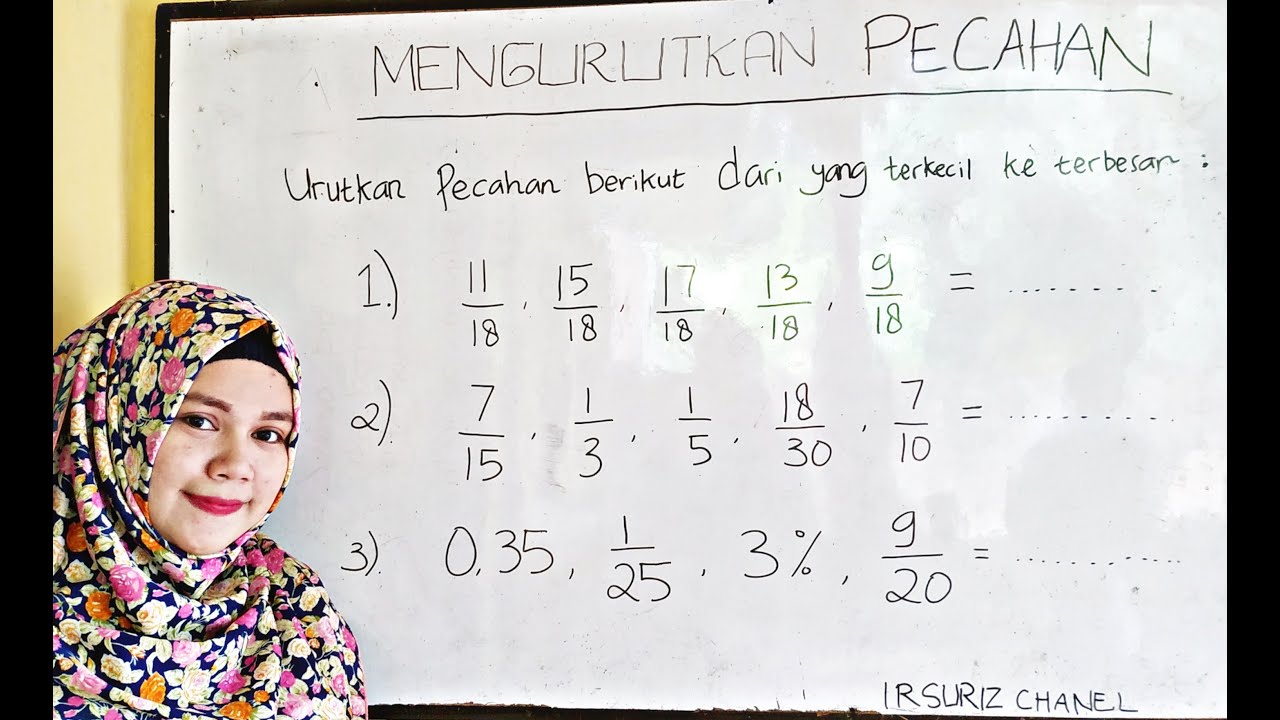 MENGURUTKAN PECAHAN
Urutkan Pecahan berikut dari yang terkecil ke terbesar :
1.) 11/18, 15/18, 17/18, 13/18, 9/18 = ..........
2). 7/15, 1/3, 1/5, 18/30, 7/10 = ..........
3). 0,35, 1/25, 3%, 9/20 = ..........
IRSURIZ CHANEL